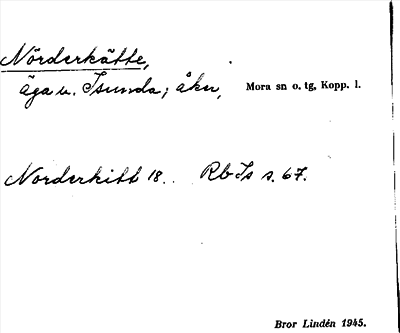 Nörderkätte,
äga u. Isunda; åker, Mora sn o. tg, Kopp. l.
Norderkitt 18.. Rb Is s. 67.
Bror Lindén 1945.